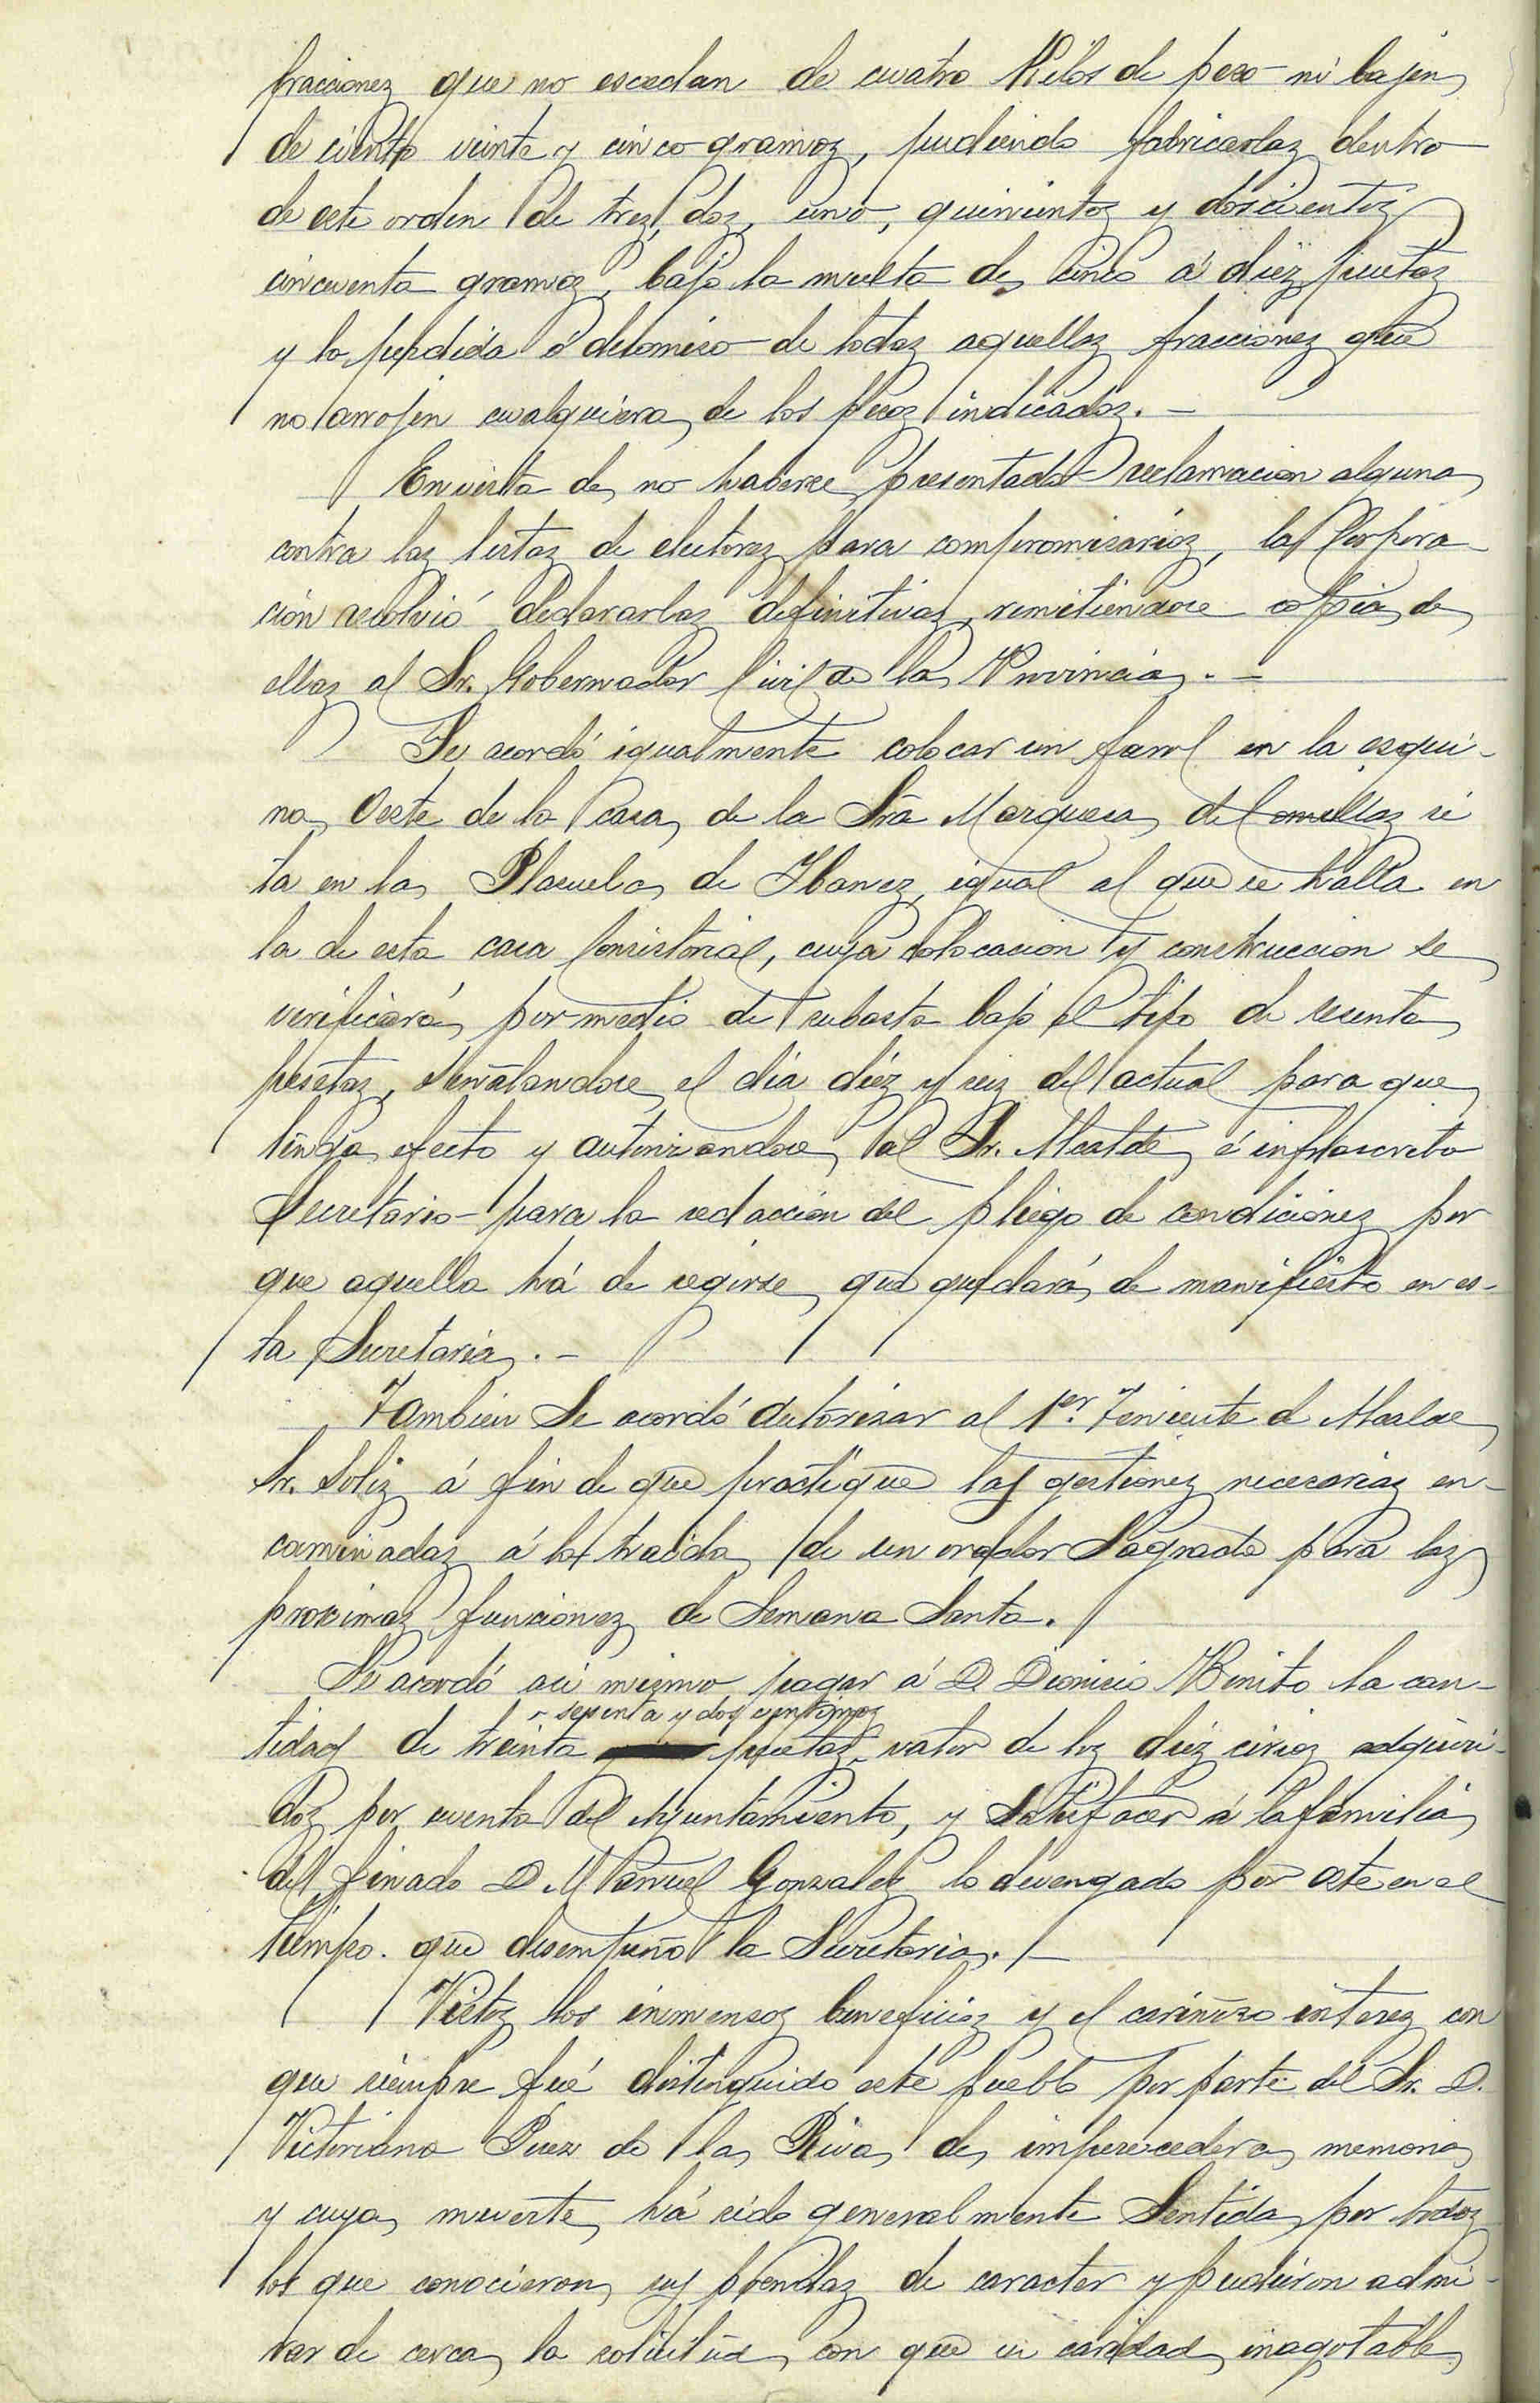 fracciones que no escedan de cuatro Kilos de peso ni bajen
de ciento veinte y cinco gramos, pudiendo fabricarlas dentro
de este orden de tres, dos, uno, quinientos y doscientos
cincuenta gramos, bajo la multa de cinco á diez pesetas
y la perdida ó decomiso de todas aquellas fracciones que
no arrojen cualquiera de los pesos indicados. —
En vista de no haberse presentado reclamacion alguna
contra las listas de electores para compromisarios, la Corpora-
ción resolvió declararlas definitivas, remitiendose copia de
ellas al Sr. Gobernador Civil de la Provincia. —
Se acordó igualmente colocar un farol en la esqui-
na Oeste de la casa de la Sra Marquesa de Comillas si
ta en la Plazuela de Ibanez, igual al que se halla en
la de esta casa Consistorial, cuya colocacion y construccion se
verificará por medio de subasta bajo el tipo de sesenta
pesetas, señalandose el día diéz y seis del actual para que
tenga efecto y autorizandose al Sr. Alcalde é infrascrito
Secretario para la redacción del pliego de condiciones por
que aquella há de regirse, que quedará de manifiesto en es-
ta Secretaria. —
Tambien Se acordó autorizar al 1er. Teniente d Alcalde
Sr. Soliz á fin de que practique las gestiones necesarias en-
caminadas á la traida de un orador Sagrado para las
proximas funciones de Semana Santa.
Se acordó asi mismo pagar á D. Dionisio Benito la can-
setenta y dos centimos
tidad de treinta pesetas valor de los diéz cirios adquiri-
dos por cuenta del Ayuntamiento, y satisfacer á la familia
del finado D. Manuel Gonzalez lo devengado por este en el
tiempo que desempeñó la Secretaria. —
Vistos los inmensos beneficios y el cariñoso interes con
que siempre fué distinguido este pueblo por parte del Sr. D.
Victoriano Perez de la Riva de imperecedera memoria
y cuya muerte há sido generalmente Sentida por todos
los que conocieron sus prendas de caracter y pudieron admi-
rar de cerca la solicitud con que su caridad inagotable